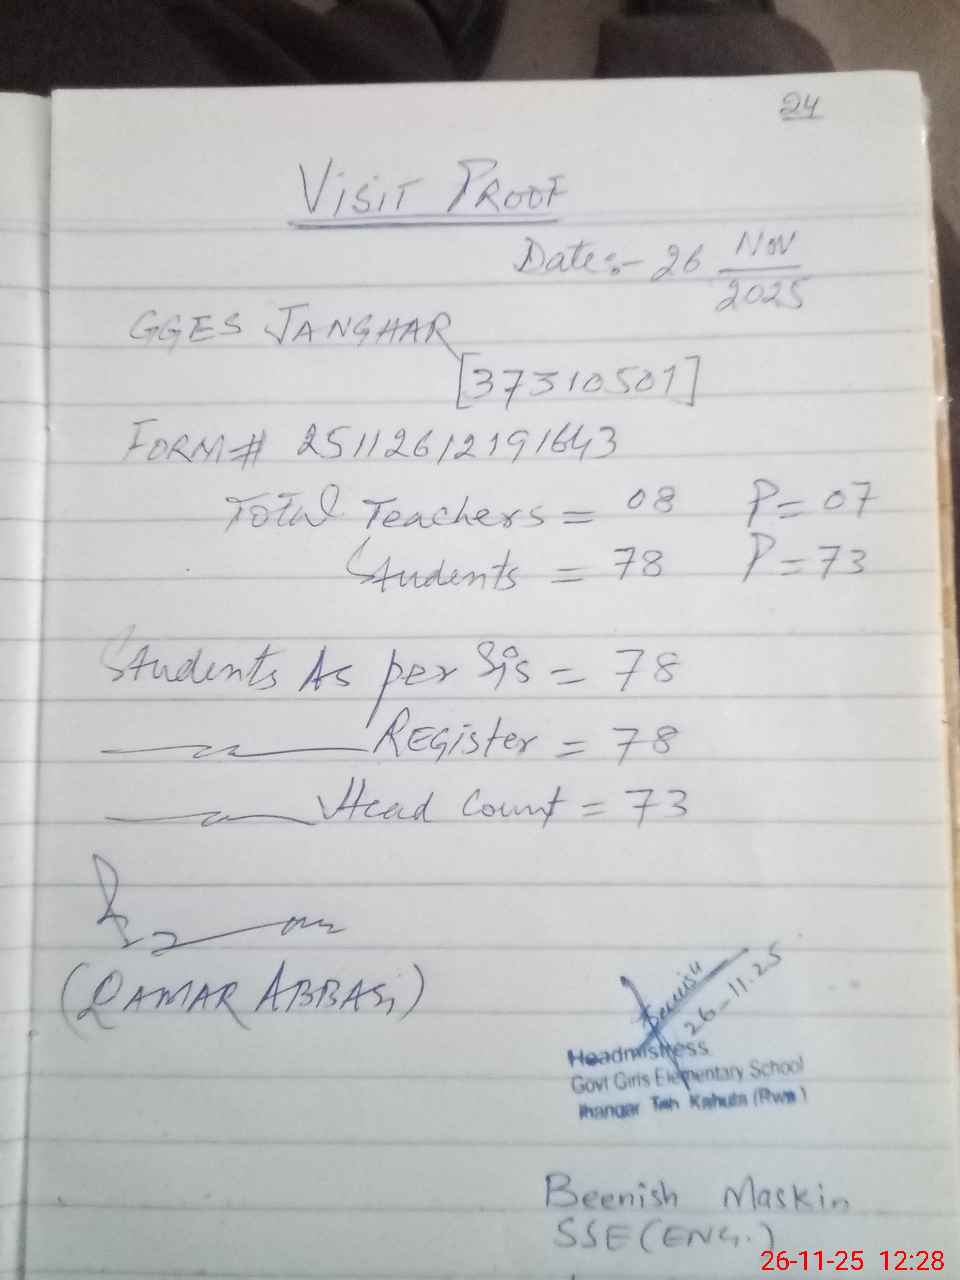 24
VISIT PROOF
Date:- 26 Nov
2025
GGES JANGHAR
[37310501]
FORM# 25112612191643
Total Teachers = 08 P= 07
Students = 78 P= 73
Students As per Sis = 78
Register = 78
Head Count = 73
(QAMAR ABBASI)
Beenish
26-11.25
Headmistress
Govt Girls Elementary School
Jhangar Teh Kahuta (Rwp)
Beenish Maskin
SSE (ENG.)
26-11-25 12:28